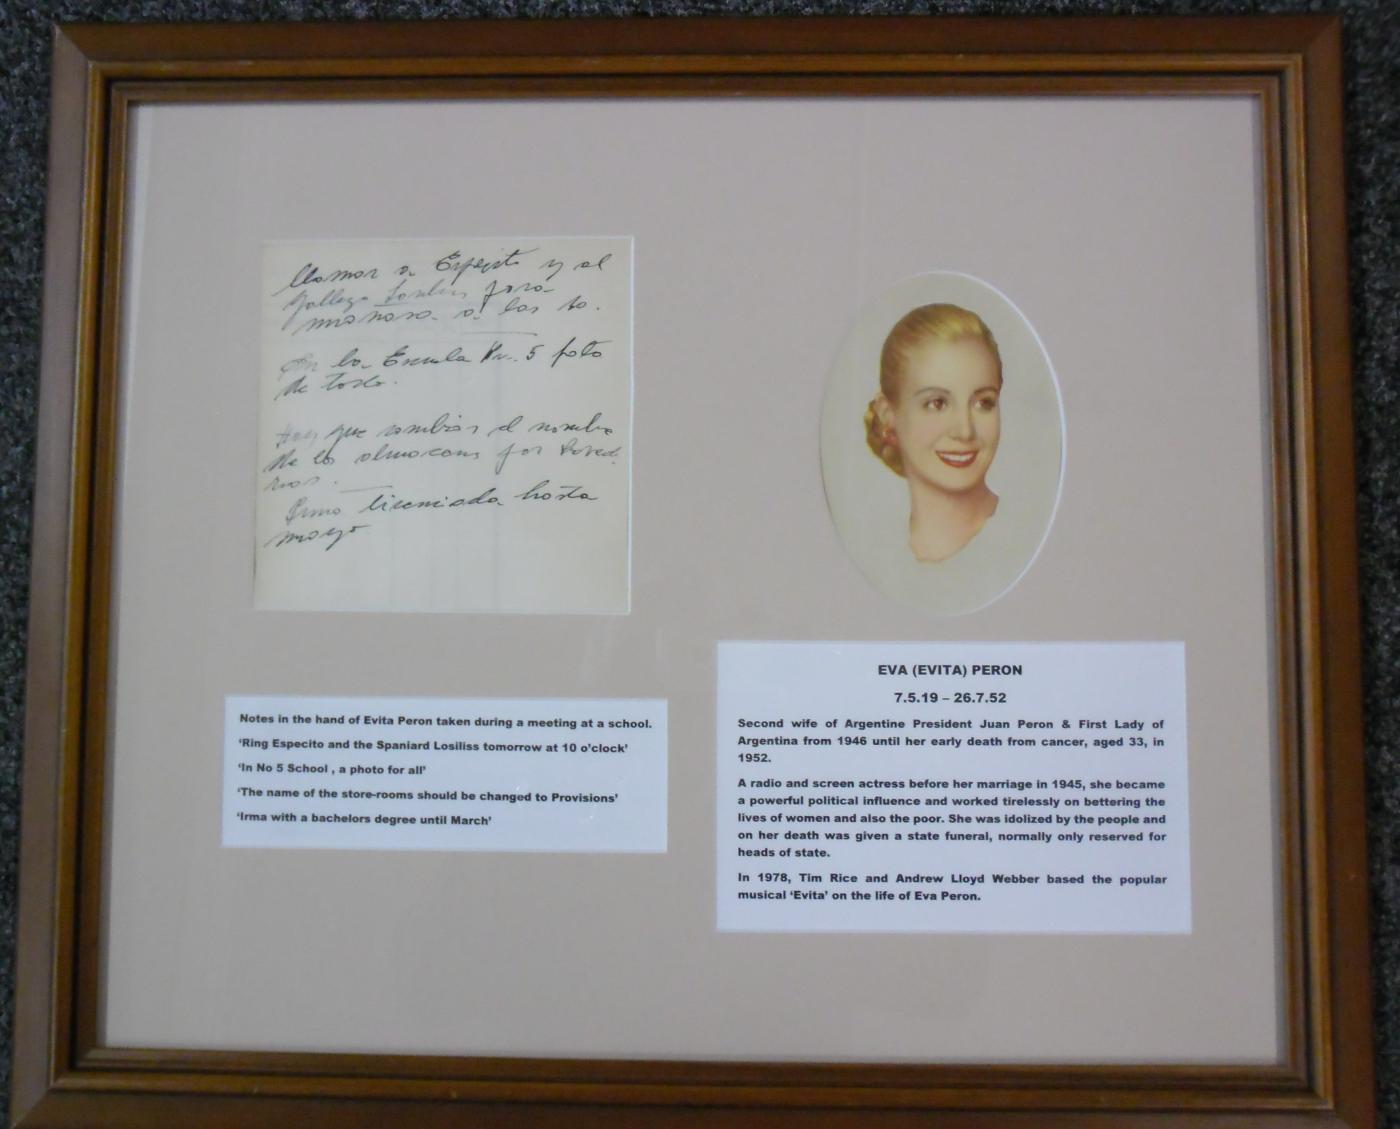 llamar a Espejito y al
Gallego para
mañana a las 10.
En la Escuela Nr. 5 foto
de todo.
Hay que cambiar el nombre
de los almacens por Proved-
rias.
Irma licenciada hasta
mayo
Notes in the hand of Evita Peron taken during a meeting at a school.
‘Ring Especito and the Spaniard Losiliss tomorrow at 10 o’clock’
‘In No 5 School , a photo for all’
‘The name of the store-rooms should be changed to Provisions’
‘Irma with a bachelors degree until March’
EVA (EVITA) PERON
7.5.19 – 26.7.52
Second wife of Argentine President Juan Peron & First Lady of
Argentina from 1946 until her early death from cancer, aged 33, in
1952.
A radio and screen actress before her marriage in 1945, she became
a powerful political influence and worked tirelessly on bettering the
lives of women and also the poor. She was idolized by the people and
on her death was given a state funeral, normally only reserved for
heads of state.
In 1978, Tim Rice and Andrew Lloyd Webber based the popular
musical ‘Evita’ on the life of Eva Peron.